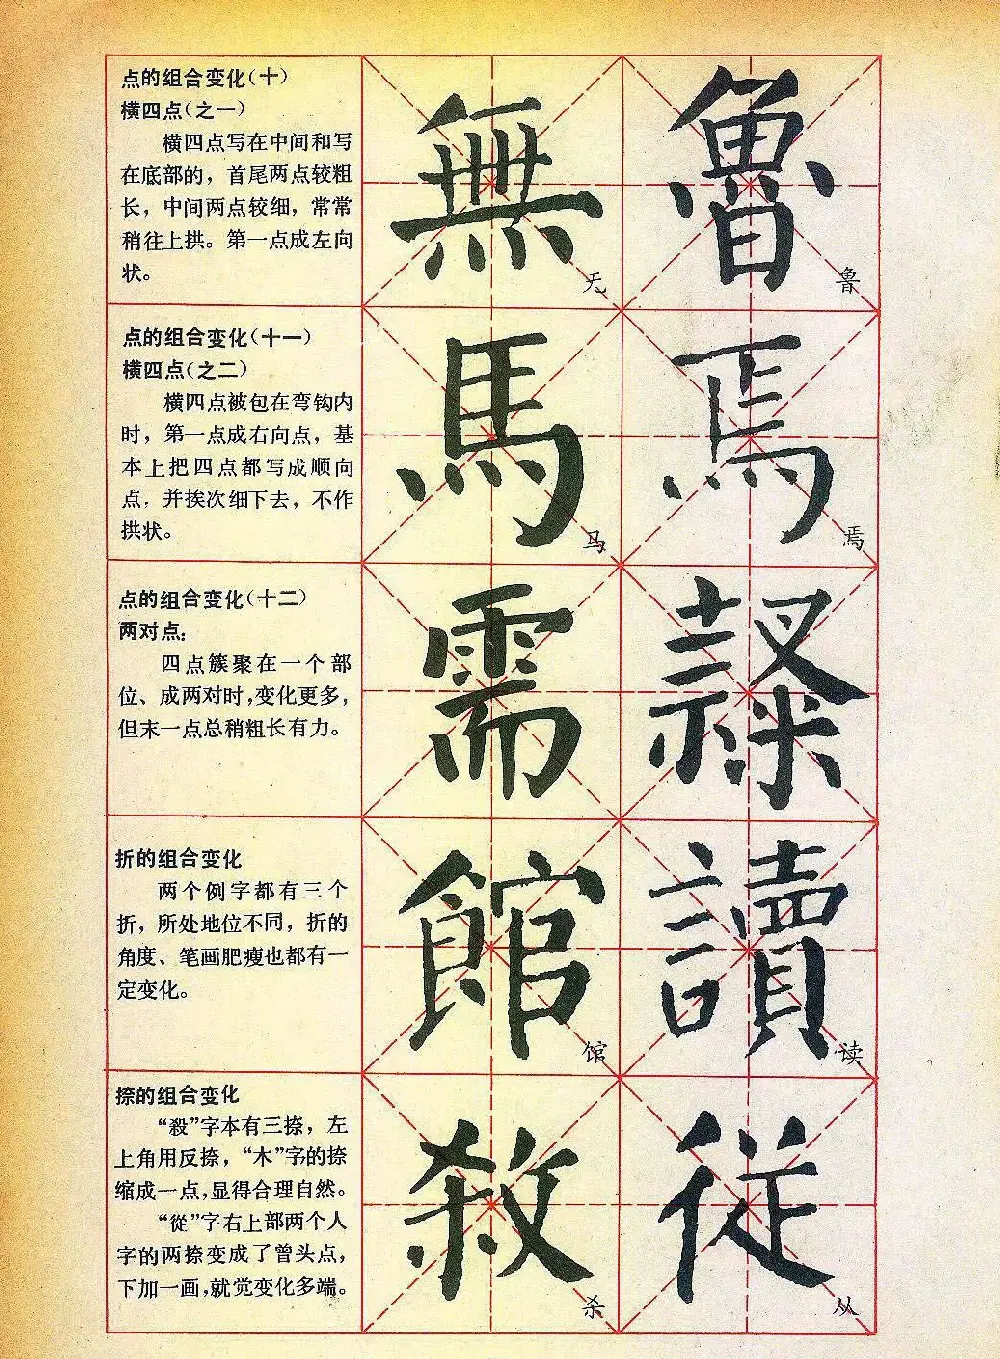 点的组合变化(十)
横四点(之一)
横四点写在中间和写
在底部的，首尾两点较粗
长，中间两点较细，常常
稍往上拱。第一点成左向
状。
無
无
魯
鲁
点的组合变化(十一)
横四点(之二)
横四点被包在弯钩内
时，第一点成右向点，基
本上把四点都写成顺向
点，并挨次细下去，不作
拱状。
馬
马
焉
焉
点的组合变化(十二)
两对点：
四点簇聚在一个部
位、成两对时，变化更多，
但末一点总稍粗长有力。
需
折的组合变化
两个例字都有三个
折，所处地位不同，折的
角度、笔画肥瘦也都有一
定变化。
館
馆
讀
读
捺的组合变化
“殺”字本有三捺，左
上角用反捺，“木”字的捺
缩成一点，显得合理自然。
“從”字右上部两个人
字的两捺变成了曾头点，
下加一画，就觉变化多端。
殺
杀
從
从